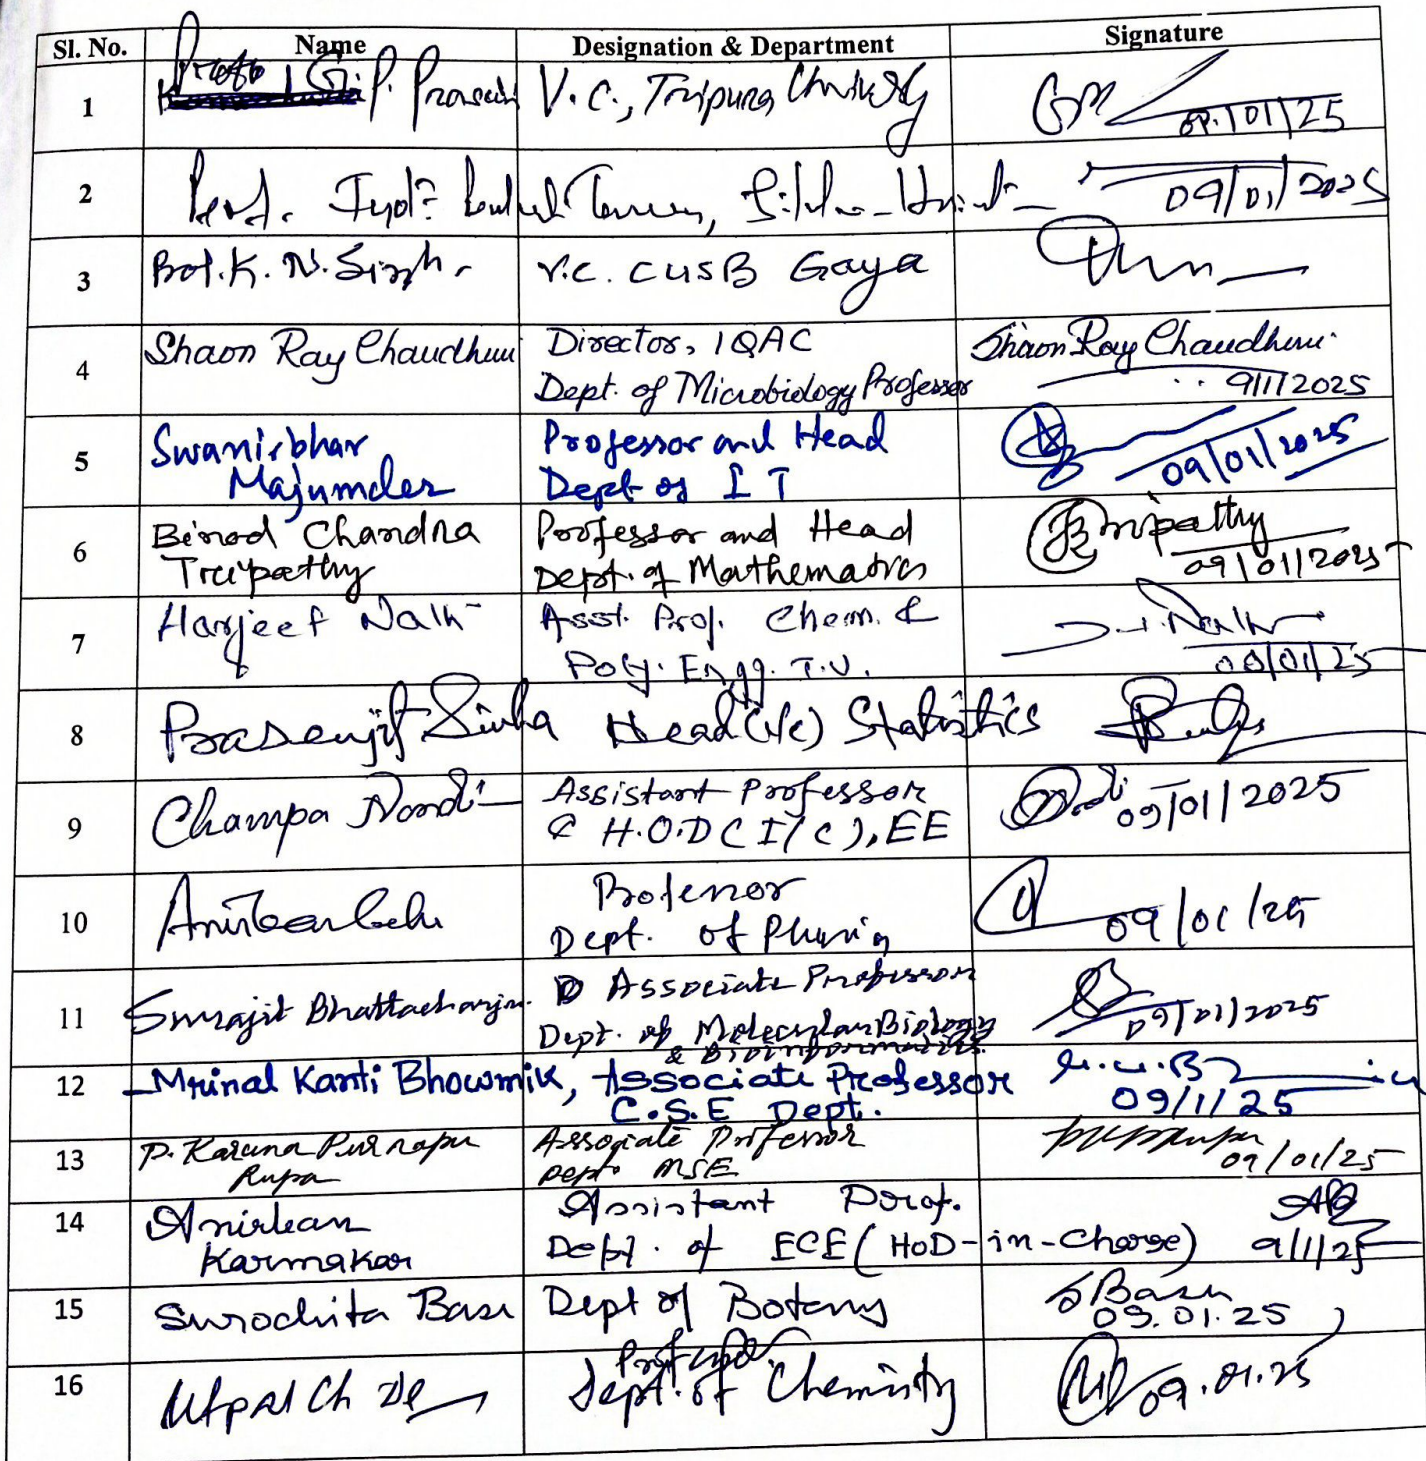 Sl. No. Name Designation & Department Signature
1 Prof. G. P. Prasain V.C., Tripura University 09/01/25
2 Prof. 09/01/2025
3 Prof. K. N. Singh. V.C. CUSB Gaya
4 Shaon Ray Chaudhuri Director, IQAC Shaon Ray Chaudhuri.
Dept. of Microbiology Professor 9/1/2025
5 Swanirbhar Professor and Head
Majumder Dept of I T 09/01/2025
6 Binod Chandra Professor and Head Tripathy
Tripathy Dept. of Mathematics 09/01/2025
7 Harjeet Nath Asst. Prof. Chem. &
Poly. Engg. T.U. 09/01/25
8 Prasenjit Sinha Head (i/c) Statistics
9 Champa Nandi Assistant Professor
& H.O.D (I/C), EE 09/01/2025
10 Professor
Dept. of 09/01/25
11 Surajit Bhattacharjee. Associate Professor
Dept. of Molecular Biology
& Bioinformatics. 09/01/2025
12 Mrinal Kanti Bhowmik, Associate Professor
C.S.E Dept. 09/1/25
13 P. Karuna Purnapu Associate Professor
Rupa Dept. MSE 09/01/25
14 Anirban Assistant Prof.
Karmakar Dept. of ECE (HoD-in-Charge) 9/1/25
15 Surochita Basu Dept of Botany S Basu
09.01.25
16 Utpal Ch De Professor
Dept. of Chemistry 09.01.25